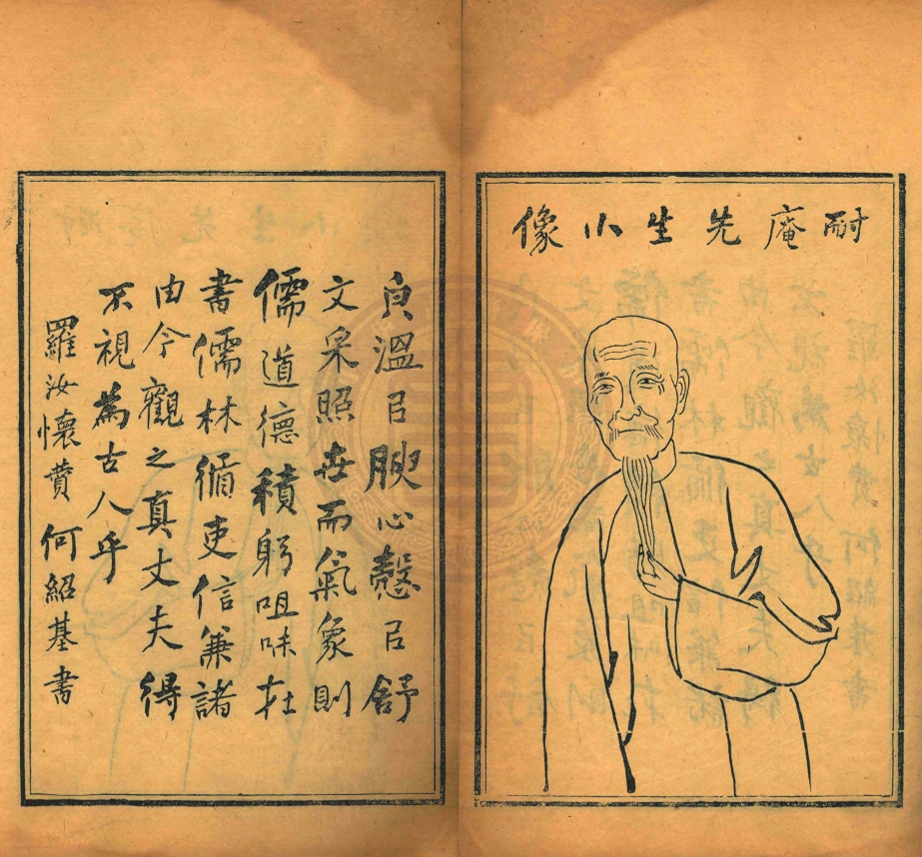 耐庵先生小像
皃溫㠯腴心慤㠯舒
文采照世而氣象則
儒道德積躬咀味在
書儒林循吏信兼諸
由今觀之真丈夫得
不視為古人乎
羅汝懷贊 何紹基書